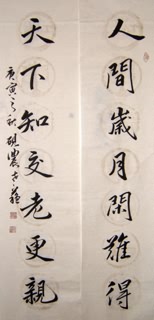 人間歲月閑難得
天下知交老更親
庚寅之秋硯農書